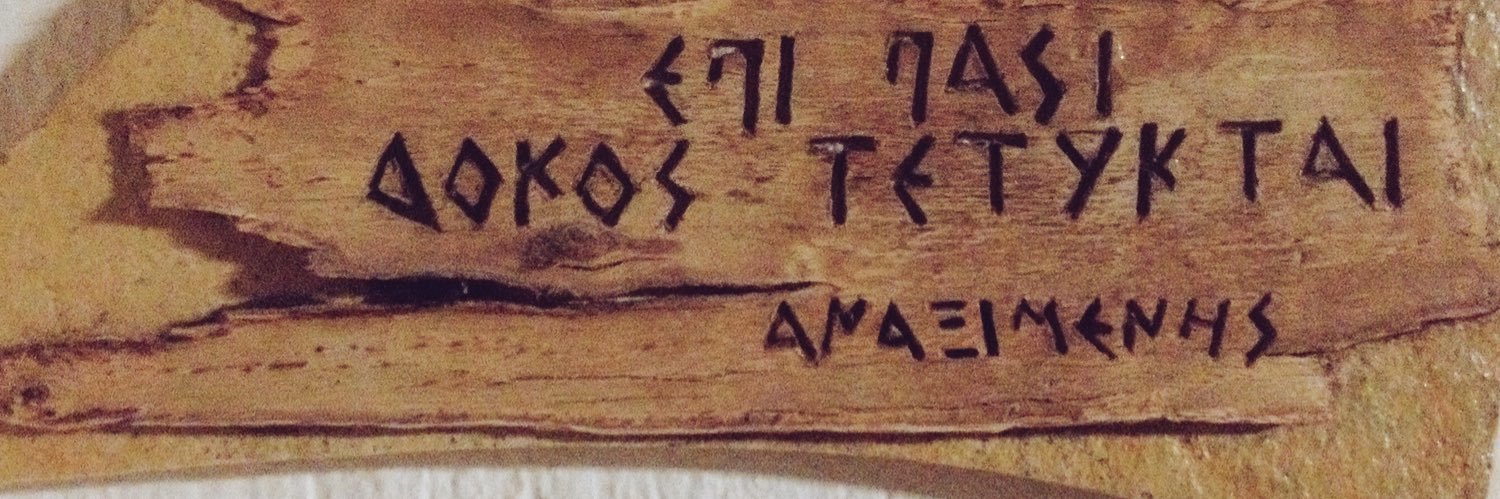 ΕΠΙ ΠΑΣΙ
ΔΟΚΟΣ ΤΕΤΥΚΤΑΙ
ΑΝΑΞΙΜΕΝΗΣ